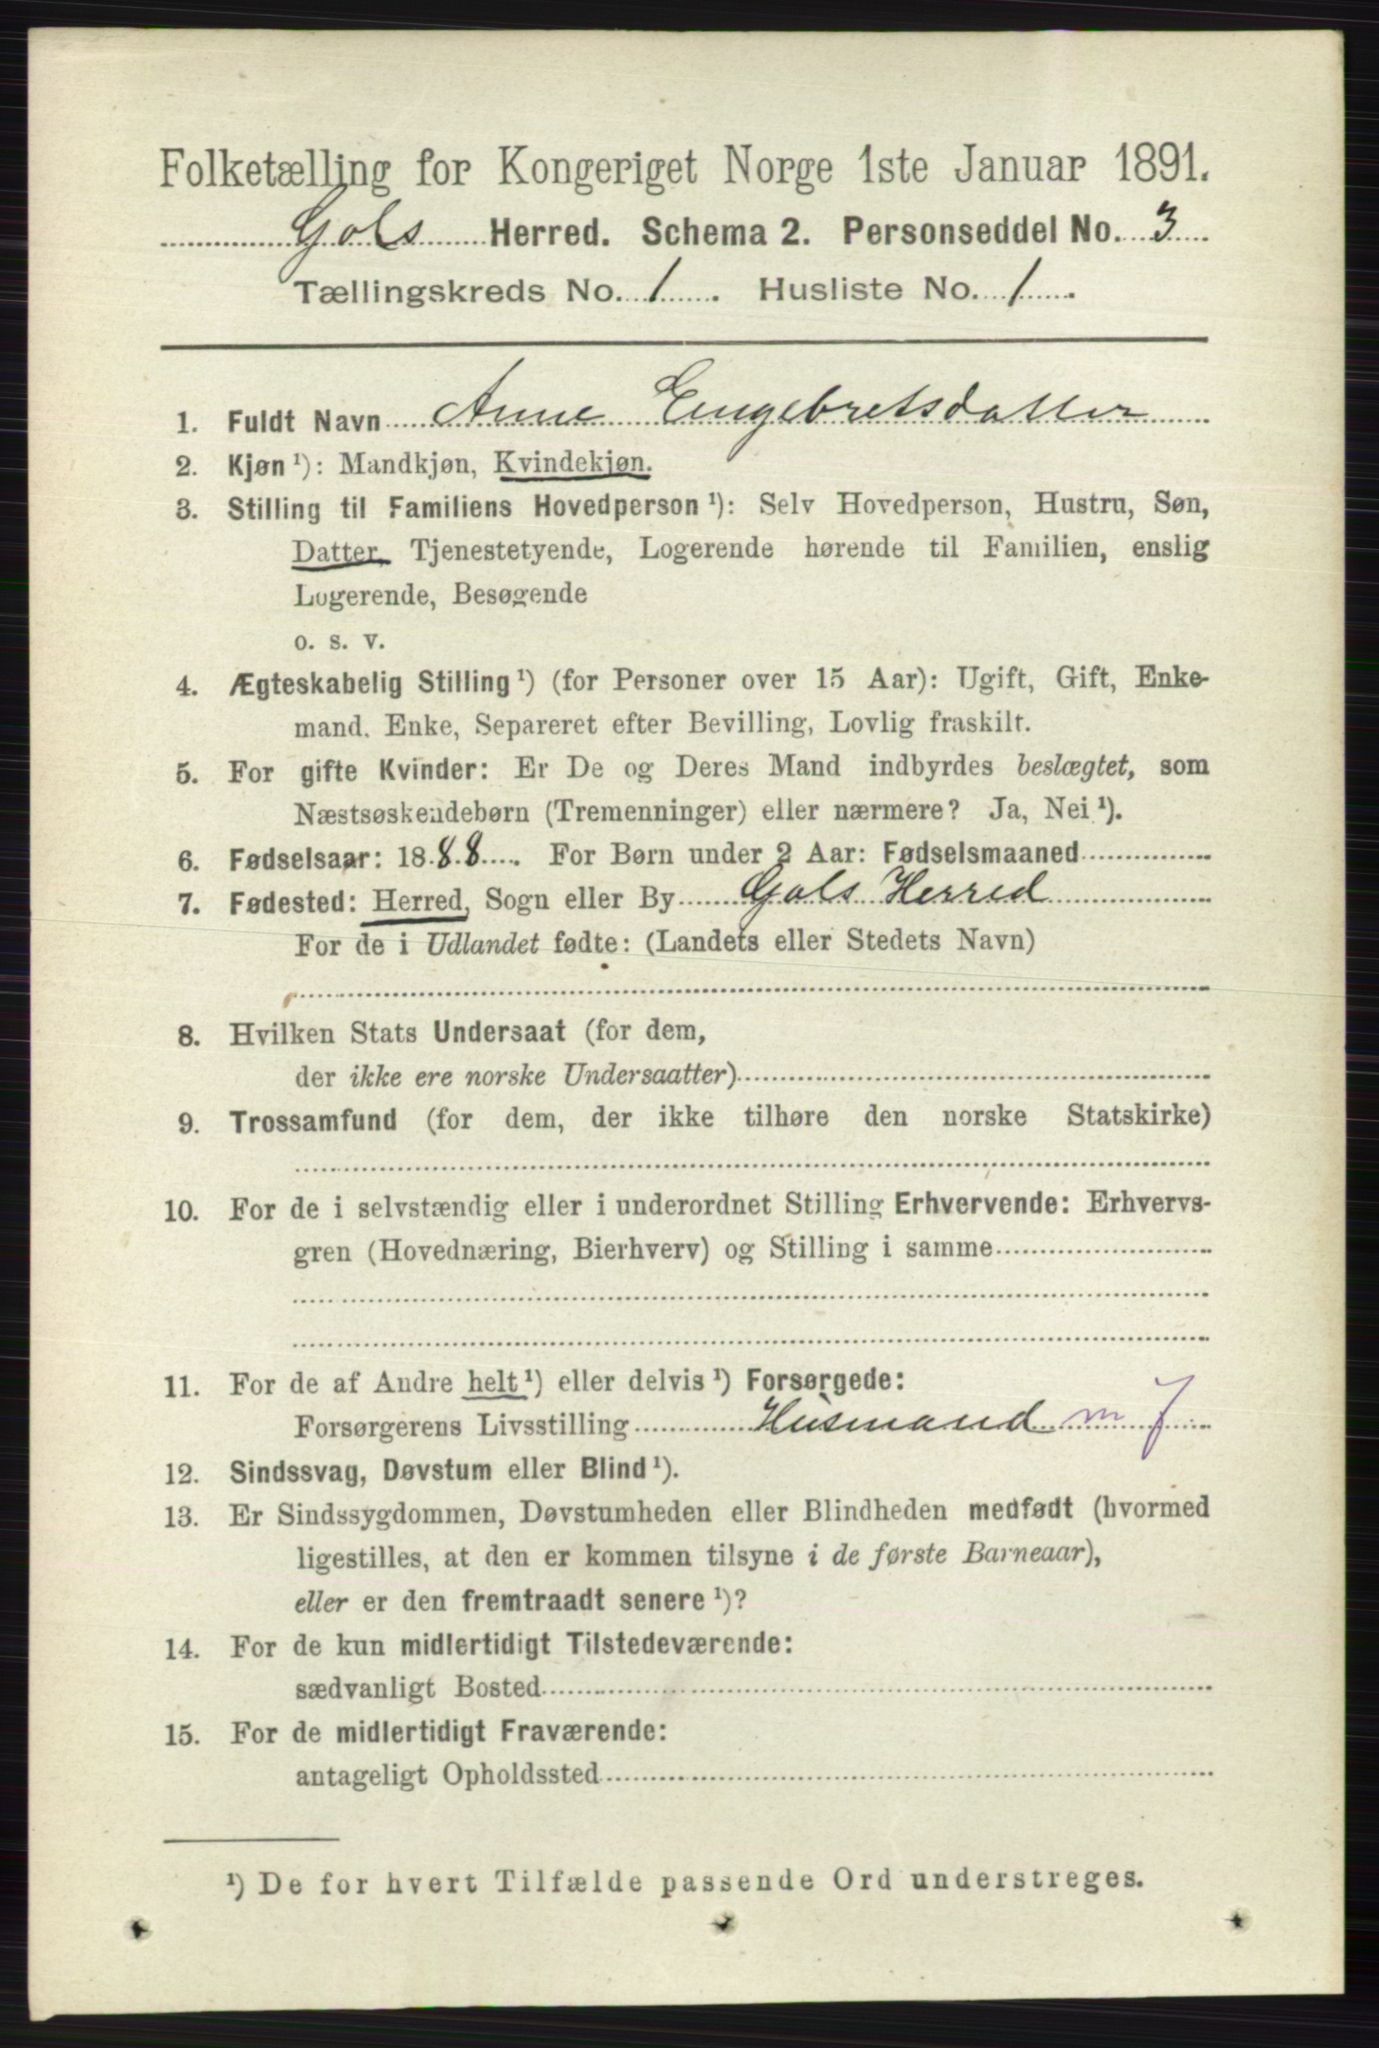 Folketælling for Kongeriget Norge 1ste Januar 1891.
Gols Herred. Schema 2. Personseddel No. 3
Tællingskreds No. 1. Husliste No. 1.
1. Fuldt Navn Anne Engebretsdatter
2. Kjøn ¹): Mandkjøn, Kvindekjøn.
3. Stilling til Familiens Hovedperson ¹): Selv Hovedperson, Hustru, Søn,
Datter, Tjenestetyende, Logerende hørende til Familien, enslig
Logerende, Besøgende
o. s. v.
4. Ægteskabelig Stilling ¹) (for Personer over 15 Aar): Ugift, Gift, Enke-
mand. Enke, Separeret efter Bevilling, Lovlig fraskilt.
5. For gifte Kvinder: Er De og Deres Mand indbyrdes beslægtet, som
Næstsøskendebørn (Tremenninger) eller nærmere? Ja, Nei ¹).
6. Fødselsaar: 1888. For Børn under 2 Aar: Fødselsmaaned
7. Fødested: Herred, Sogn eller By Gols Herred
For de i Udlandet fødte: (Landets eller Stedets Navn)
8. Hvilken Stats Undersaat (for dem,
der ikke ere norske Undersaatter)
9. Trossamfund (for dem, der ikke tilhøre den norske Statskirke)
10. For de i selvstændig eller i underordnet Stilling Erhvervende: Erhvervs-
gren (Hovednæring, Bierhverv) og Stilling i samme
11. For de af Andre helt ¹) eller delvis ¹) Forsørgede:
Forsørgerens Livsstilling Husmand m J
12. Sindssvag, Døvstum eller Blind ¹).
13. Er Sindssygdommen, Døvstumheden eller Blindheden medfødt (hvormed
ligestilles, at den er kommen tilsyne i de første Barneaar),
eller er den fremtraadt senere ¹)?
14. For de kun midlertidigt Tilstedeværende:
sædvanligt Bosted
15. For de midlertidigt Fraværende:
antageligt Opholdssted
¹) De for hvert Tilfælde passende Ord understreges.